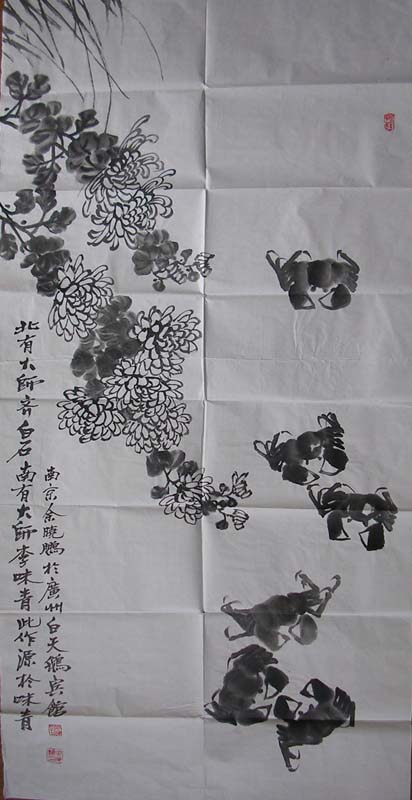 北有大師齐白石南有大師李味青此作源於味青
南京余晓鵬於廣州白天鵝宾館